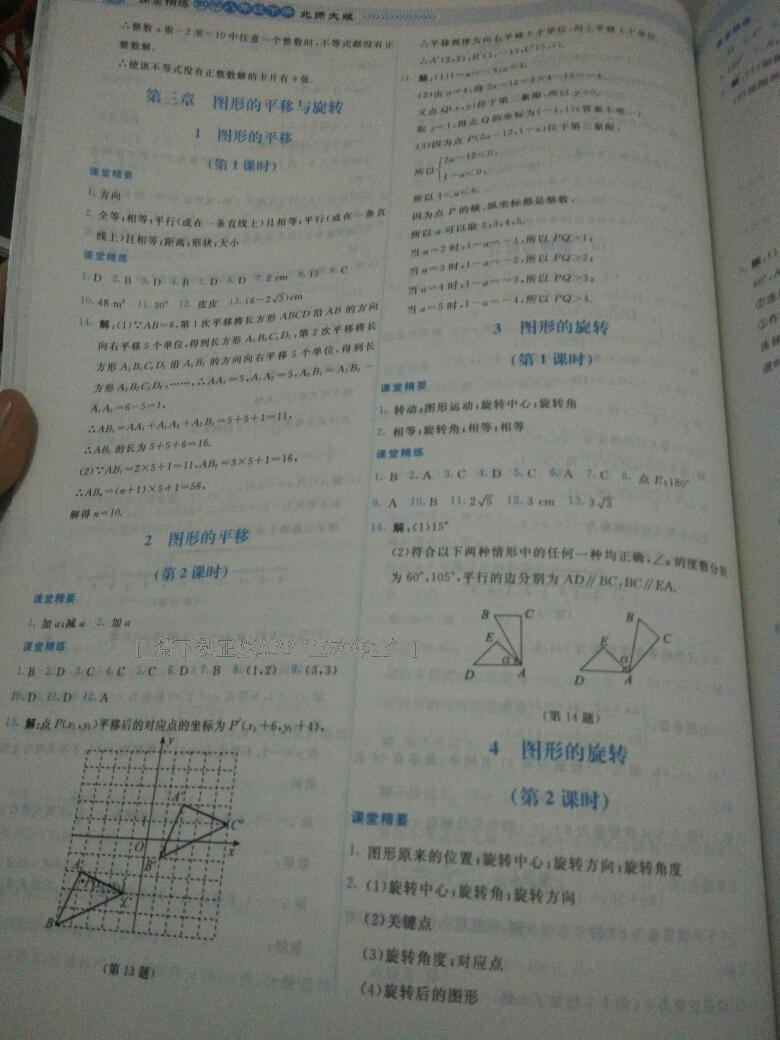 课堂精练 八年级下册 北师大版
∴整数a取-2至-10中任意一个整数时,不等式都没有正
整数解.
∴使该不等式没有正整数解的卡片有9张.
第三章 图形的平移与旋转
1 图形的平移
(第1课时)
课堂精要
1. 方向
2. 全等;相等;平行(或在一条直线上)且相等;平行(或在一条直
线上)且相等;距离;形状;大小
课堂精练
1. D 2. B 3. D 4. B 5. D 6. D 7. 2 cm 8. 15 9. C
10. 48 m² 11. 30° 12. 皮皮 13. (6-2√3)cm
14. 解:(1)∵AB=6,第1次平移将长方形ABCD沿AB的方向
向右平移5个单位,得到长方形A₁B₁C₁D₁,第2次平移将长
方形A₁B₁C₁D₁沿A₁B₁的方向向右平移5个单位,得到长
方形A₂B₂C₂D₂,……,∴AA₁=5,A₁A₂=5,A₂B₁=A₁B₁-
A₁A₂=6-5=1,
∴AB₁=AA₁+A₁A₂+A₂B₁=5+5+1=11,
∴AB₂的长为5+5+6=16.
(2)∵AB₁=2×5+1=11,AB₂=3×5+1=16,
∴ABₙ=(n+1)×5+1=56,
解得n=10.
2 图形的平移
(第2课时)
课堂精要
1. 加a;减a 2. 加a
课堂精练
1. B 2. D 3. C 4. C 5. C 6. D 7. B 8. (1,2) 9. (3,3)
10. D 11. D 12. A
13. 解:点P(x₁,y₁)平移后的对应点的坐标为P′(x₁+6,y₁+4),
y
A″
C″
O 1 x
B″
A′
C
B
(第13题)
∴平移规律为向右平移6个单位,向上平移4个单位,
∴A′(2,2),B′(1,-1),C′(5,1).
14. 解:(1)1-a=-3,a=4.
(2)由a=4,得2a-12=2×4-12=-4,
又点Q(x,y)位于第二象限,所以y>0,
取y=1,得点Q的坐标为(-4,1)(答案不唯一).
(3)因为点P(2a-12,1-a)位于第三象限,
所以{2a-12<0,
1-a<0,
所以1<a<6.
因为点P的横、纵坐标都是整数,
所以a可以取2,3,4,5.
当a=2时,1-a=-1,所以PQ>1;
当a=3时,1-a=-2,所以PQ>2;
当a=4时,1-a=-3,所以PQ>3;
当a=5时,1-a=-4,所以PQ>4.
3 图形的旋转
(第1课时)
课堂精要
1. 转动;图形运动;旋转中心;旋转角
2. 相等;旋转角;相等;相等
课堂精练
1. B 2. A 3. C 4. D 5. C 6. A 7. C 8. 点E;180°
9. A 10. B 11. 2√5 12. 3 cm 13. 3√3
14. 解:(1)15°
(2)符合以下两种情形中的任何一种均正确,∠α的度数分别
为60°,105°,平行的边分别为AD∥BC,BC∥EA.
B C
E
α
D A
B
C
E
α
D A
(第14题)
4 图形的旋转
(第2课时)
课堂精要
1. 图形原来的位置;旋转中心;旋转方向;旋转角度
2. (1)旋转中心;旋转角;旋转方向
(2)关键点
(3)旋转角度;对应点
(4)旋转后的图形